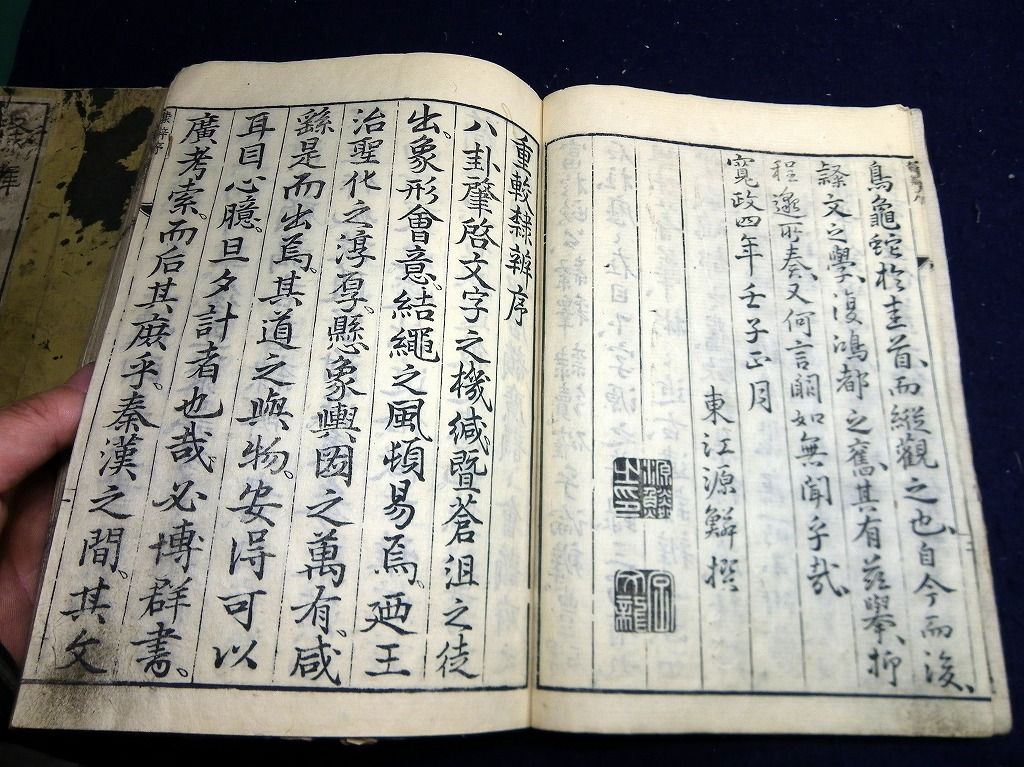 鳥龜蛇於圭首、而縱觀之也、自今而後、
隸文之學、復鴻都之舊、其有茲舉、抑
程邈所奏、又何言闕如無聞乎哉、
寬政四年壬子正月
東江源鱗撰
源鱗之印
文龍
重較隸辨序
八卦肇啓文字之機緘。暨蒼沮之徒
出。象形會意。結繩之風頓易焉。廼王
治聖化之淳厚。懸象輿圖之萬有。咸
繇是而出焉。其道之與物。安得可以
耳目心臆。旦夕計者也哉。必博群書。
廣考索。而后其庶乎。秦漢之間。其文